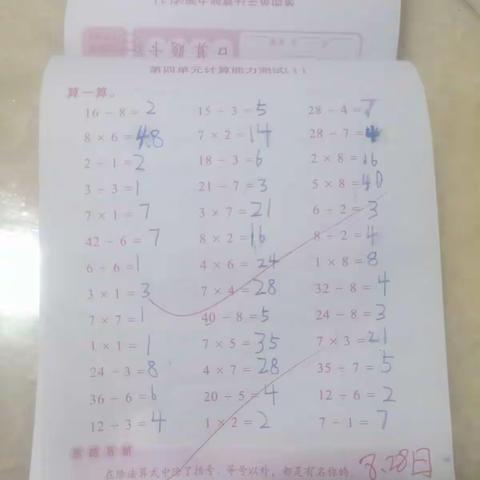 口算题卡
第四单元计算能力测试(1)
算一算。
16÷8=2 15÷3=5 28÷4=7
8×6=48 7×2=14 28÷7=4
2÷1=2 18÷3=6 2×8=16
3÷3=1 21÷7=3 5×8=40
7×1=7 3×7=21 6÷2=3
42÷6=7 8×2=16 8÷2=4
6÷6=1 4×6=24 1×8=8
3×1=3 7×4=28 32÷8=4
7÷7=1 40÷8=5 24÷8=3
1×1=1 7×5=35 7×3=21
24÷3=8 4×7=28 35÷7=5
36÷6=6 20÷5=4 12÷6=2
12÷3=4 1×2=2 7÷1=7
在除法算式中除了括号、等号以外，都是有名称的
8.28日